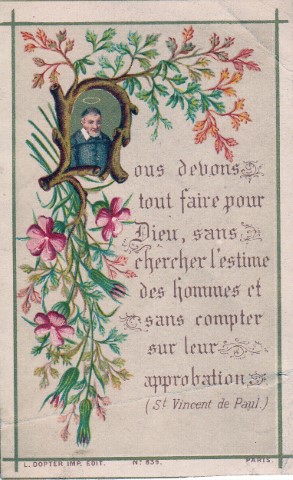 ous devons
tout faire pour
Dieu, sans
chercher l'estime
des hommes et
sans compter
sur leur
approbation
(St Vincent de Paul.)
L. DOPTER IMP. EDIT. No 835. PARIS.